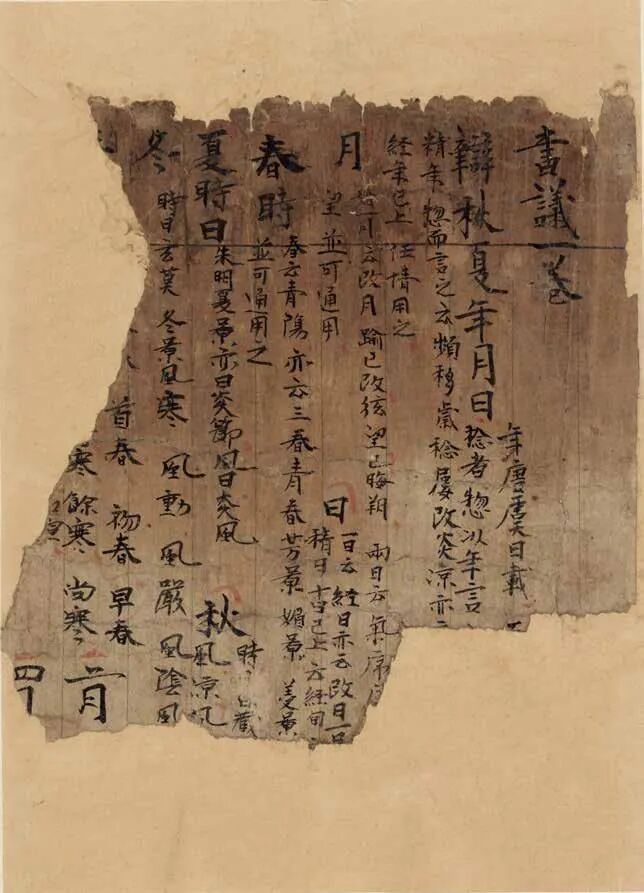 書議一卷
辯秋夏年月日
年唐虞曰載
稔者惣以年言
精年惣而言之云頻移歲稔屢改炎涼亦
經年已上任情用之
月
一月云改月踰已改弦望已晦朔 兩日云氣序
望並可通用
日
一日云經日亦云改日一日
積日十日已上云經旬
春時
春云青陽亦云三春青春芳景媚景美景
並可通用之
夏時曰
朱明夏景亦曰炎節風曰炎風
秋
時 藏
風涼風
冬
時曰玄英 冬景風寒 風勁 風嚴 風陰風
首春 初春 早春
寒 餘寒 尚寒